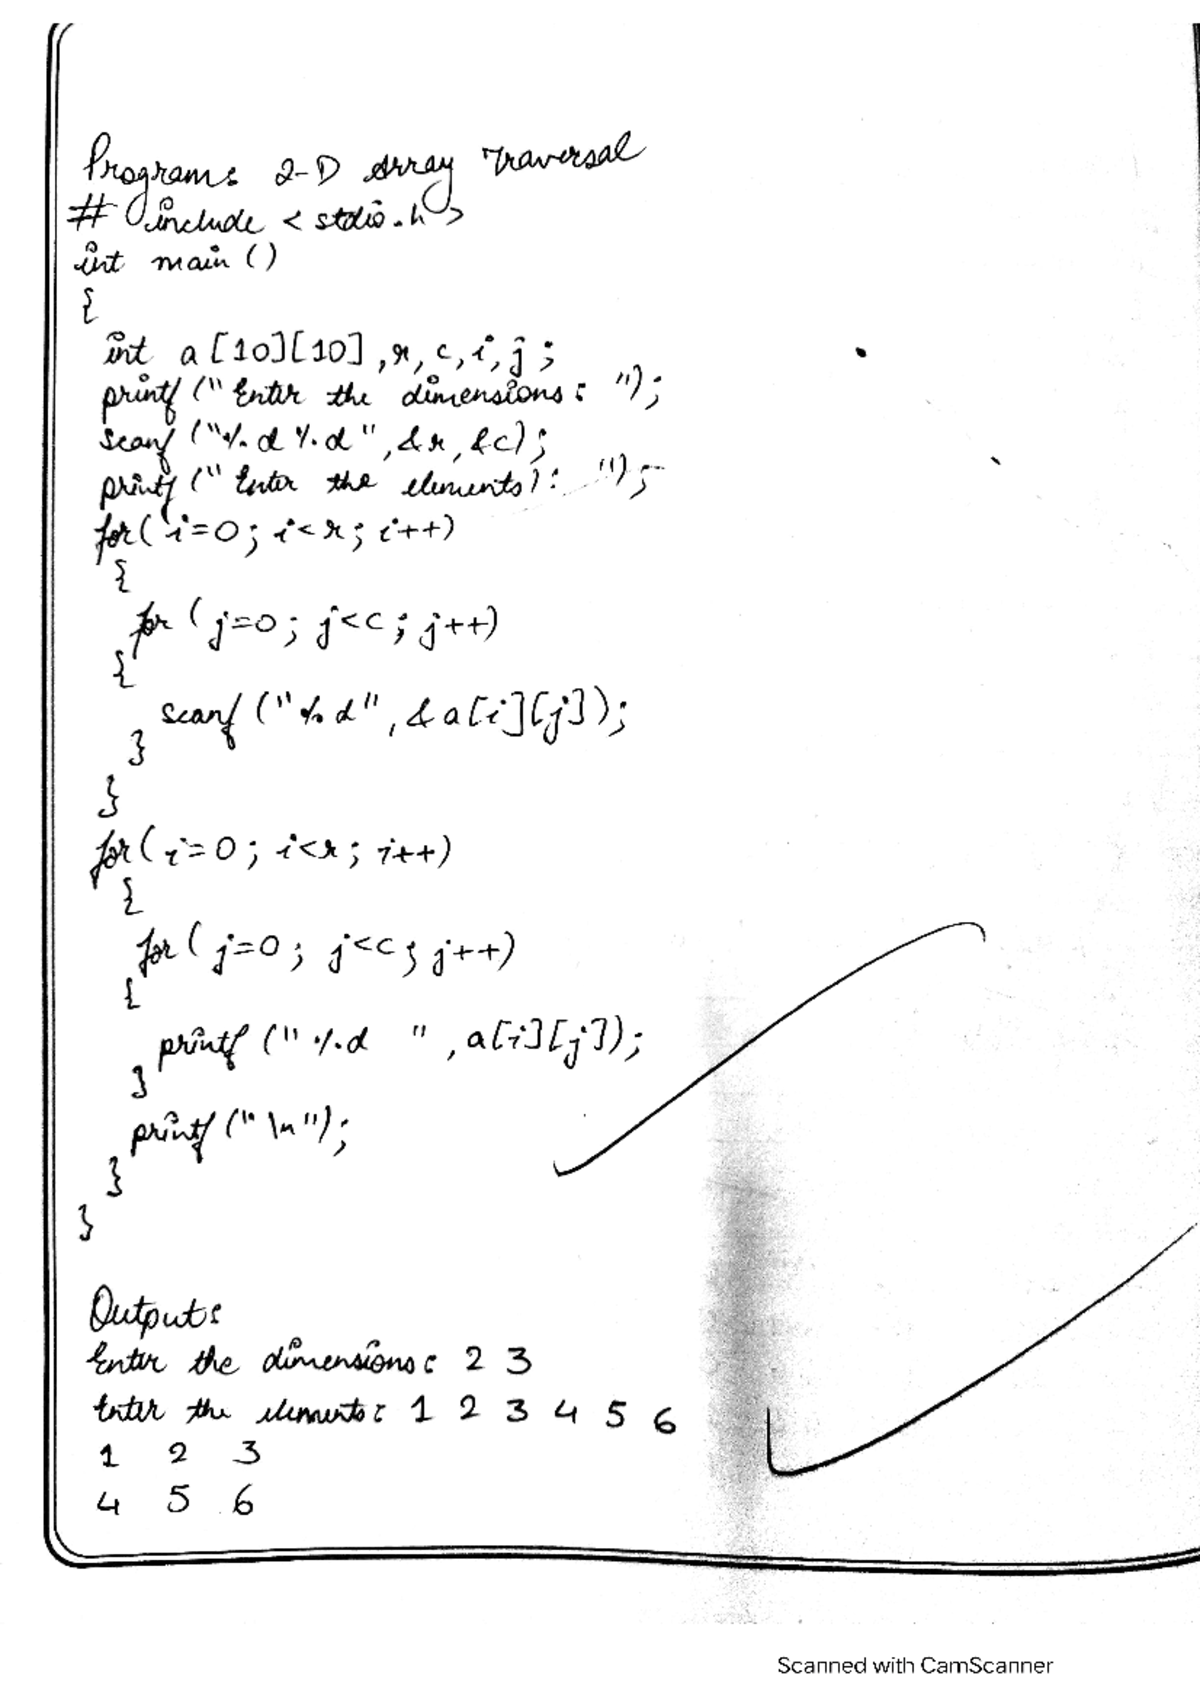 Program: 2-D Array Traversal
# include < stdio.h >
int main ()
{
int a [10][10] ,r, c, i, j ;
printf (" Enter the dimensions : ");
scanf ("%d %d" , &r, &c) ;
printf (" Enter the elements) : ");
for( i=0 ; i<r ; i++)
{
for ( j=0 ; j<c ; j++)
{
scanf ("%d" , &a[i][j]);
}
}
for( i=0 ; i<r ; i++)
{
for ( j=0 ; j<c ; j++)
{
printf (" %d " , a[i][j]);
}
printf (" \n ");
}
}
Output:
Enter the dimensions : 2 3
Enter the elements : 1 2 3 4 5 6
1 2 3
4 5 6
Scanned with CamScanner